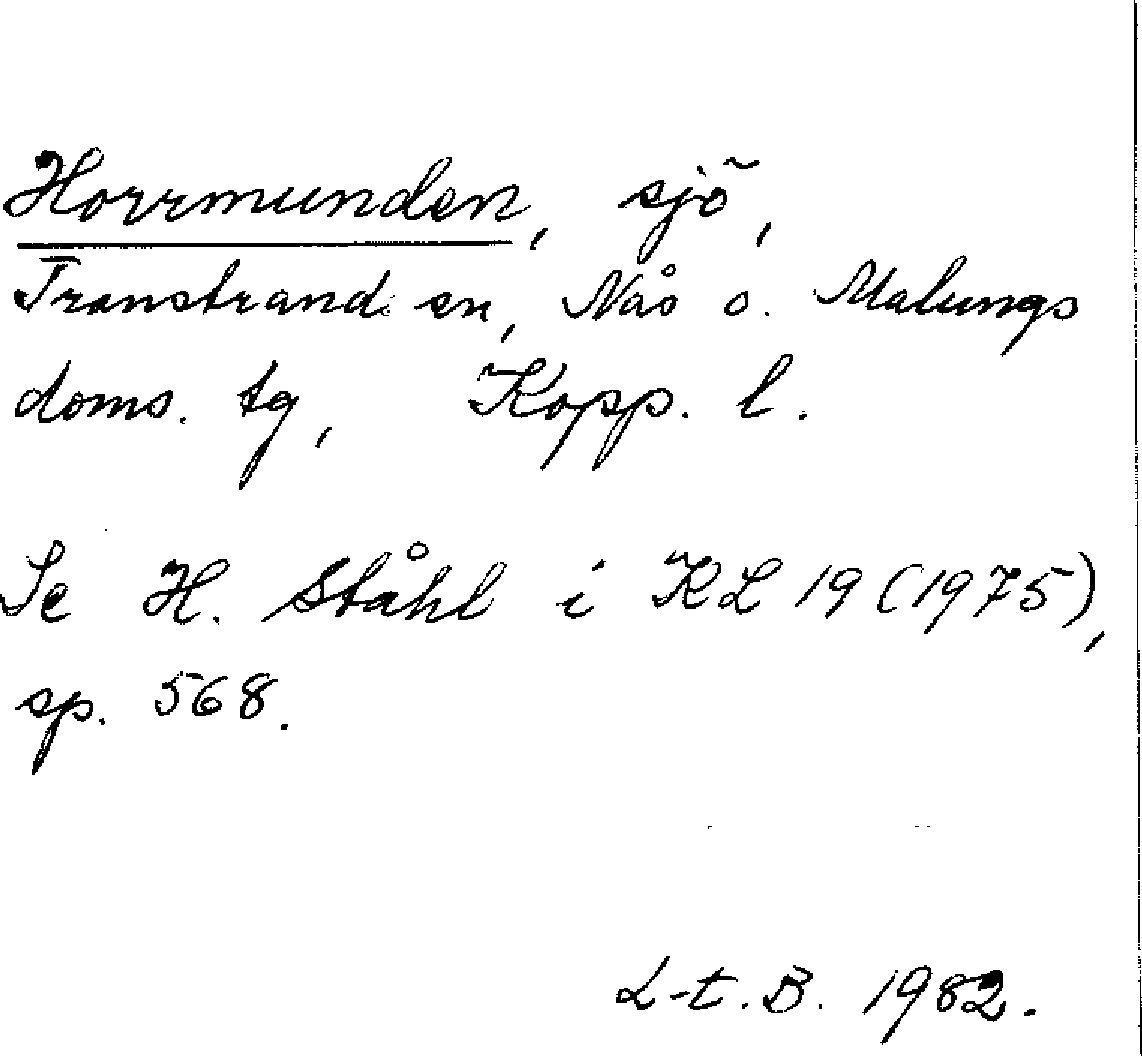 Horrmunden, sjö,
Transtrand sn, Nås o. Malungs
doms. tg, Kopp. l.
Se H. Ståhl i KL 19 (1975),
sp. 568.
L-t. B. 1982.